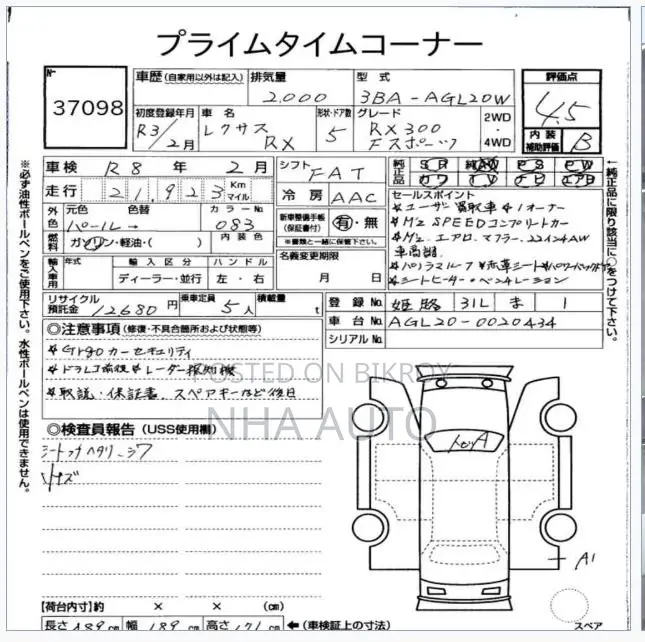 プライムタイムコーナー
No 37098
車歴 (自家用以外は記入) 排気量 型式 評価点
2.000 3BA-AGL20W 4.5
初度登録年月 車名 形状・ドア数 グレード 2WD・4WD
R3/2月 レクサス RX 5 RX300 Fスポーツ
内装補助評価 B
車検 R8年 2月 シフト FAT 純正品 SR AW PS PW
カワ TV ナビ エアB
走行 21,923 Km マイル 冷房 AAC セールスポイント
外色 元色 色替 カラーNo. 新車整備手帳(保証書付) 有・無
パール→ 083 ※書類と一緒に保管下さい。
燃料 ガソリン・軽油・( ) 内装色 名義変更期限
輸入車用 年式 輸入区分 ハンドル 月 日
ディーラー・並行 左・右
*ユーザー買取車*1オーナー
*M'z SPEEDコンプリートカー
*M'z.エアロ.マフラー.22インチAW
車高調
*パノラマルーフ*赤革シート*パワーバックドア
*シートヒーター・ベンチレーション
リサイクル預託金 12680円 乗車定員 5人 積載量 t
登録No. 姫路 31L ま 1
車台No. AGL20-0020434
シリアルNo.
◎注意事項 (修復・不具合箇所および状態等)
*Grgoカーセキュリティ
*ドラレコ前後*レーダー探知機
*取説・保証書.スペアキーなど後日
◎検査員報告 (USS使用欄)
シート
キズ
A
A1
POSTED ON BIKROY
NHA AUTO
【荷台内寸】約 × × (cm)
長さ 489cm 幅 189cm 高さ 171cm ←(車検証上の寸法)
スペア
※必ず油性ボールペンをご使用下さい。水性ボールペンは使用できません。
←純正品に限り該当に○をつけて下さい。